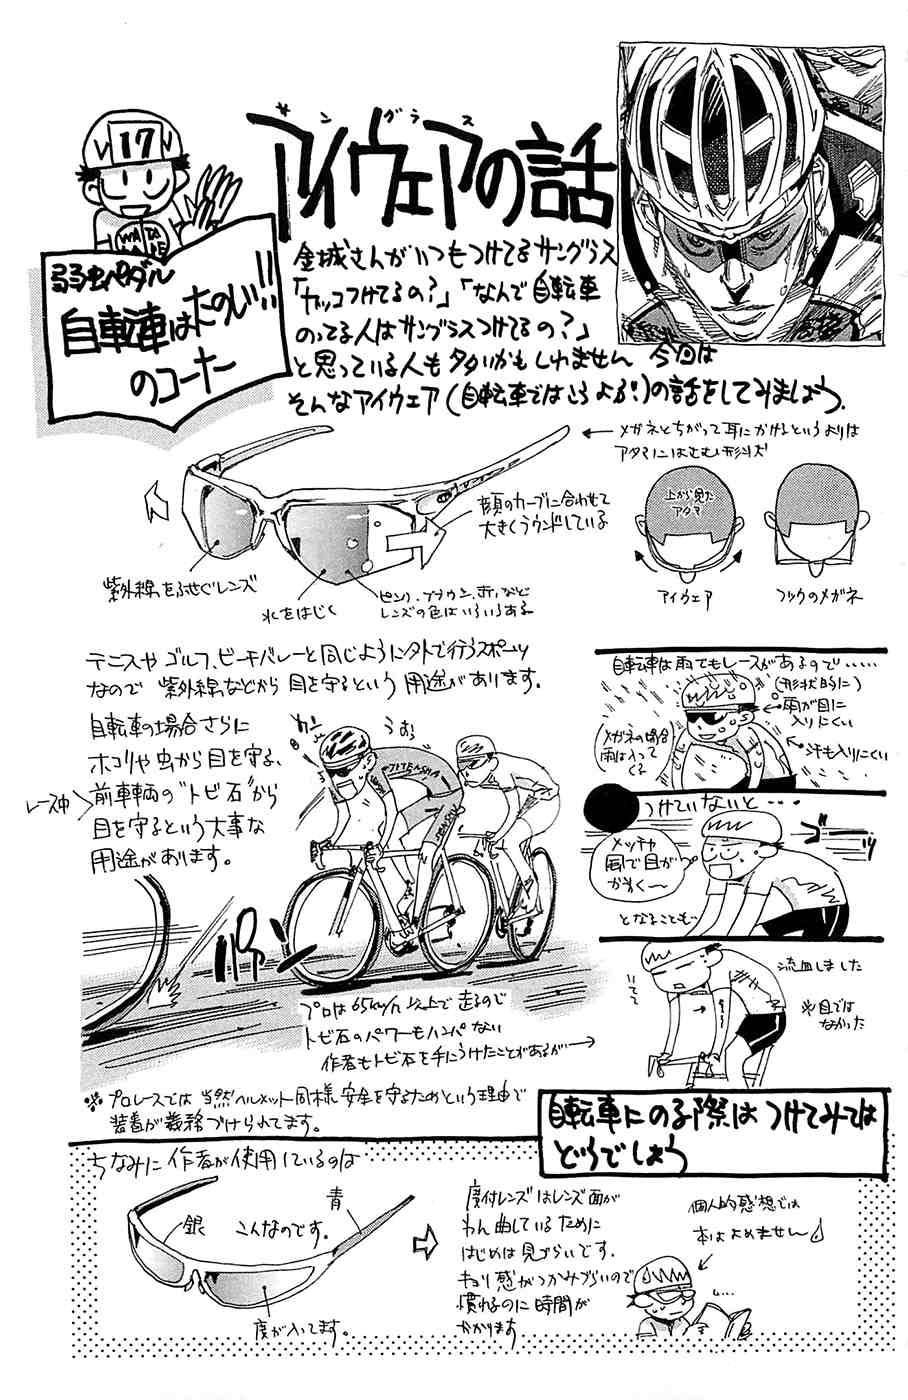 17
WATANABE
弱虫ペダル
自転車はたのしい!!
のコーナー
アイウェアの話
サングラス
金城さんがいつもつけてるサングラス
「カッコつけてるの?」「なんで自転車
のってる人はサングラスつけてるの?」
と思っている人も多いかもしれません 今回は
そんなアイウェア(自転車ではこうよぶ!)の話をしてみましょう.
←メガネとちがって耳にかけるというよりは
アタマにはさむ形状だ
顔のカーブに合わせて
大きくラウンドしている
紫外線をふせぐレンズ
水をはじく
ピンク、ブラウン、赤、など
レンズの色はいろいろある
上から見た
アタマ
アイウェア
フツウのメガネ
テニスや ゴルフ、ビーチバレーと同じように外で行うスポーツ
なので 紫外線などから 目を守るという 用途があります。
自転車の場合さらに
ホコリや虫から目を守る、
レース中
前車輌の"トビ石"から
目を守るという大事な
用途があります。
うおお
プロは65km/h 以上で 走るので
トビ石のパワーもハンパない
作者もトビ石を手にうけたことがあるが→
自転車は雨でもレースがあるので‥‥‥
(形状的に)
←雨が目に
入りにくい
(メガネの場合
雨は入って
くる)
汗も入りにくい
つけていないと‥‥
メッチャ
風で目が
かわく〜
となることも
流血しました
※目では
なかった
※プロレースでは 当然ヘルメット同様 安全を守るためという理由で
装着が義務づけられてます。
自転車にのる際は つけてみては
どうでしょう
ちなみに 作者が使用しているのは
銀
こんなのです。
青
度が入ってます。
度付レンズはレンズ面が
わん曲しているために
はじめは見づらいです。
キョリ感がつかみづらいので
慣れるのに時間が
かかります
個人的感想では
本はよめません